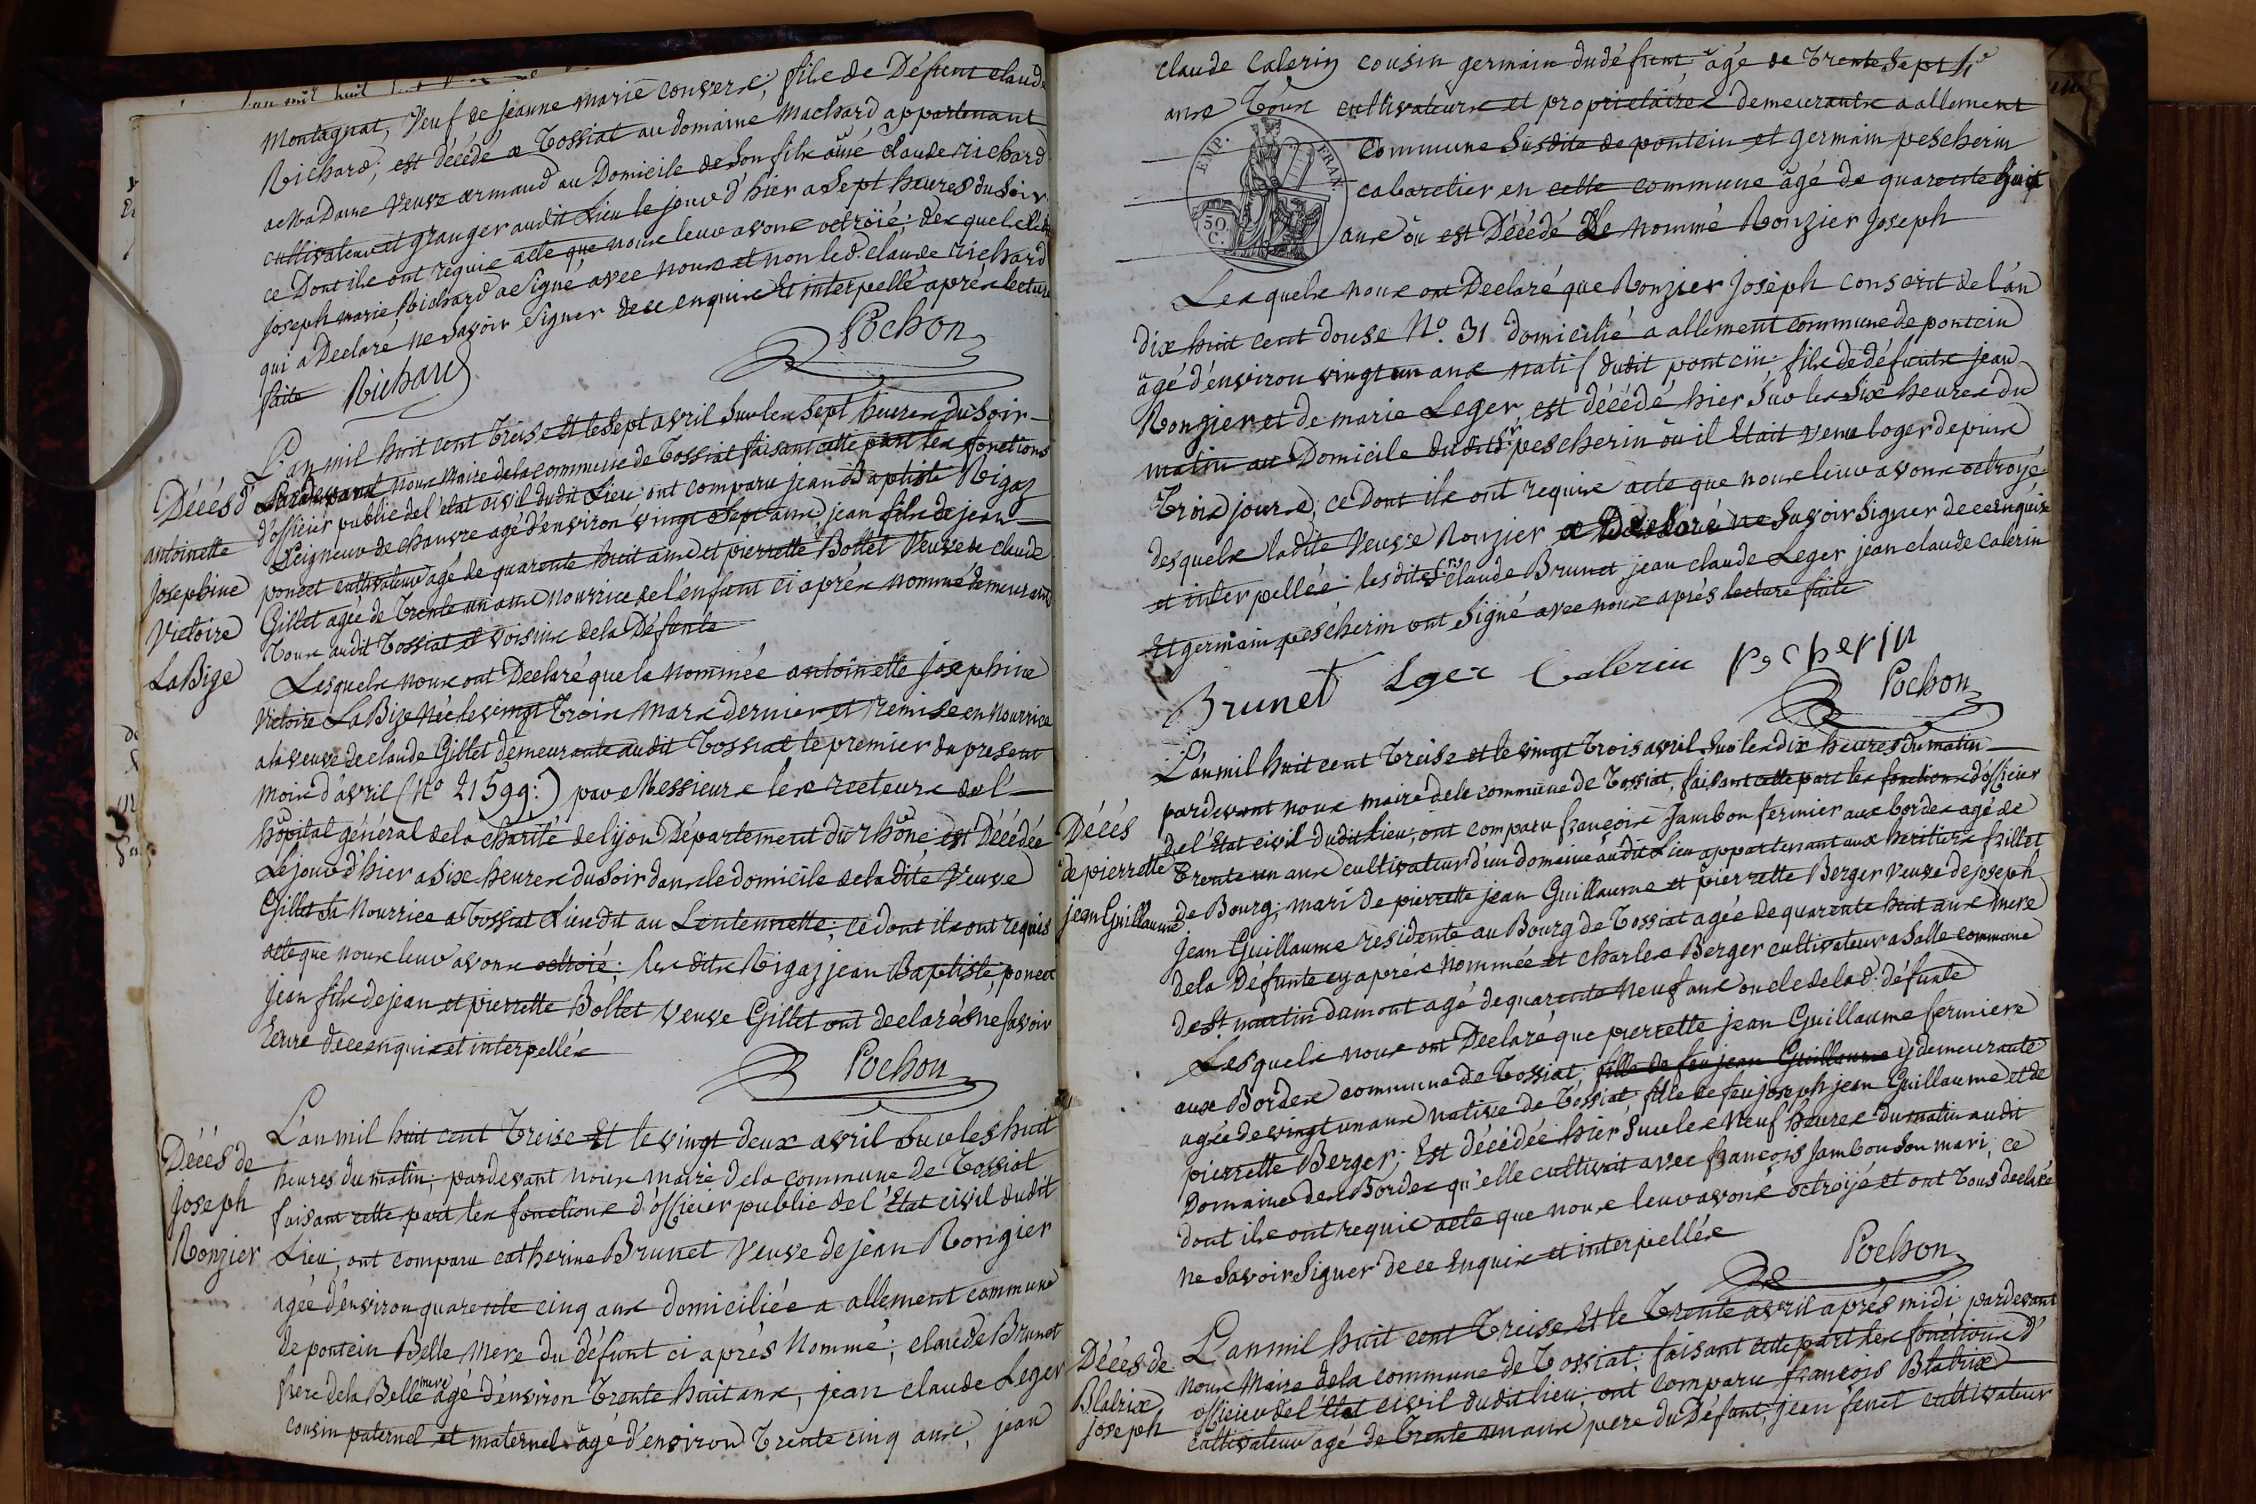 Montagnat, Veuf de jeanne marie convers, fils de Défunt claude
Richard, est décédé a Tossiat au domaine Machard appartenant
a Madame Veuve armand au Domicile de son fils ainé claude richard
cultivateur et granger audit Lieu le jour d'hier a Sept heures du Soir
ce Dont ils ont requis acte que nous leur avons octroïé; desquels ledit
joseph marie Richard a Signé avec nous et non led. claude richard
qui a Declaré ne Savoir Signer de ce enquis et interpellé aprés lecture
faite Richard Pochon
L'an mil huit cent treise et le Sept avril Sur les Sept heures du Soir
Pardevant nous Maire de la commune de Tossiat faisant cette part les fonctions
d'officier public de l'état civil dudit Lieu ont comparu jean Baptiste Rigaz
Seigneur de chanvre agé d'environ vingt Sept ans, jean fils de jean
poncet cultivateur agé de quarente huit ans et pierrette Bollet Veuve de claude
Gillet agée de Trente un ans nourrice de l'enfant ci aprés nommé demeurants
Tous audit Tossiat et voisins de la Défunte
Décés d'
antoinette
Josephine
Victoire
LaBize
Lesquels nous ont Declaré que la nommée antoinette Josephine
Victoire LaBize Née le vingt Trois Mars dernier et remise en Nourrice
a la veuve de claude Gillet demeurante audit Tossiat le premier du present
mois d'avril (No 21599:) par Messieurs les recteurs de l'
hôpital général de la charité de lyon Département du rhône est Décédée
Le jour d'hier a Six heures du Soir dans le domicile de la dite Veuve
Gillet Sa Nourrice a Tossiat Lieu dit au Lentennette; ce dont ils ont requis
acte que nous leur avons octroié; les dits Rigaz jean Baptiste, poncet
Jean fils de jean et pierrette Bollet Veuve Gillet ont declarés ne Savoir
Ecrire de ce enquis et interpellés
Pochon
Décés de
Joseph
Ronzier
L'an mil huit cent Treise Et le vingt deux avril Sur les huit
heures du matin; pardevant nous maire de la commune de Tossiat
faisant cette part les fonctions d'officier public de l'Etat civil dudit
Lieu, ont comparu catherine Brunet Veuve de jean Rongier
agée d'environ quarente cinq ans domiciliée a allement commune
de pontcin Belle Mere du défunt ci aprés Nommé; claude Brunet
frere de la Belle mere agé d'environ Trente huit ans, jean claude Leger
cousin paternel et maternel agé d'environ Trente cinq ans, jean
claude Calerin cousin germain du défunt agé de Trente Sept
ans Tous cultivateurs et proprietaires demeurants a allement
Commune Susdite de pontcin et germain pescherin
cabaretier en cette commune agé de quarente huit
ans ôu est Décédé le nommé Ronzier Joseph
EMP. FRAN.
50 C.
Lesquels nous ont Declaré que Ronzier Joseph conscrit de l'an
dix huit cent douse No. 31 domicilié a allement commune de pontcin
agé d'environ vingt un ans natif dudit pontcin, fils de défunts jean
Ronzier et de marie Leger est décédé hier Sur les Six heures du
matin au Domicile dudit Sr pescherin ôu il Etait venu loger depuis
Trois jours; ce Dont ils ont requis acte que nous leur avons octroyé
desquels ladite Veuve Ronzier a Déclaré ne Savoir Signer de ce enquise
et interpellée; lesdits Srs claude Brunet jean claude Leger jean claude Calerin
Et germain pescherin ont Signé avec nous aprés lecture faite
Brunet Lger Calerin Pecherin
Pochon
Décés
de pierrette
jean Guillaume
L'an mil huit cent Treise et le vingt Trois avril Sur les dix heures du matin
pardevant nous maire de la commune de Tossiat, faisant cette part les fonctions d'officier
de l'Etat civil dudit Lieu, ont comparu françois Jambon fermier aux bordes agé de
Trente un ans cultivateur d'un domaine audit Lieu appartenant aux heritiers frillet
de Bourg, mari de pierrette jean Guillaume et pierrette Berger Veuve de joseph
Jean Guillaume residente au Bourg de Tossiat agée de quarente huit ans mere
de la Défunte cy aprés nommée et charles Berger cultivateur a Salle commune
de St. martin dumont agé de quarente Neuf ans oncle de la d. défunte
Lesquels nous ont Declaré que pierrette jean Guillaume fermiere
aux Bordes commune de Tossiat, fille de feu jean Guillaume y demeurante
agée de vingt un ans native de Tossiat fille de feu joseph jean Guillaume et de
pierrette Berger; Est décédée hier Sur les Neuf heures du matin audit
Domaine des Bordes qu'elle cultivait avec françois Jambon Son mari, ce
dont ils ont requis acte que nous leur avons octroyé et ont Tous declaré
ne Savoir Signer de ce Enquis et interpellés
Pochon
Décés de
Blatrix
Joseph
L'an mil huit cent Treise Et le Trente avril aprés midi pardevant
nous Maire de la commune de Tossiat; faisant cette part les fonctions d'
officier de l'Etat civil dudit lieu; ont comparu françois Blatrix
cultivateur agé de Trente un ans pere du Défunt, jean fenet cultivateur